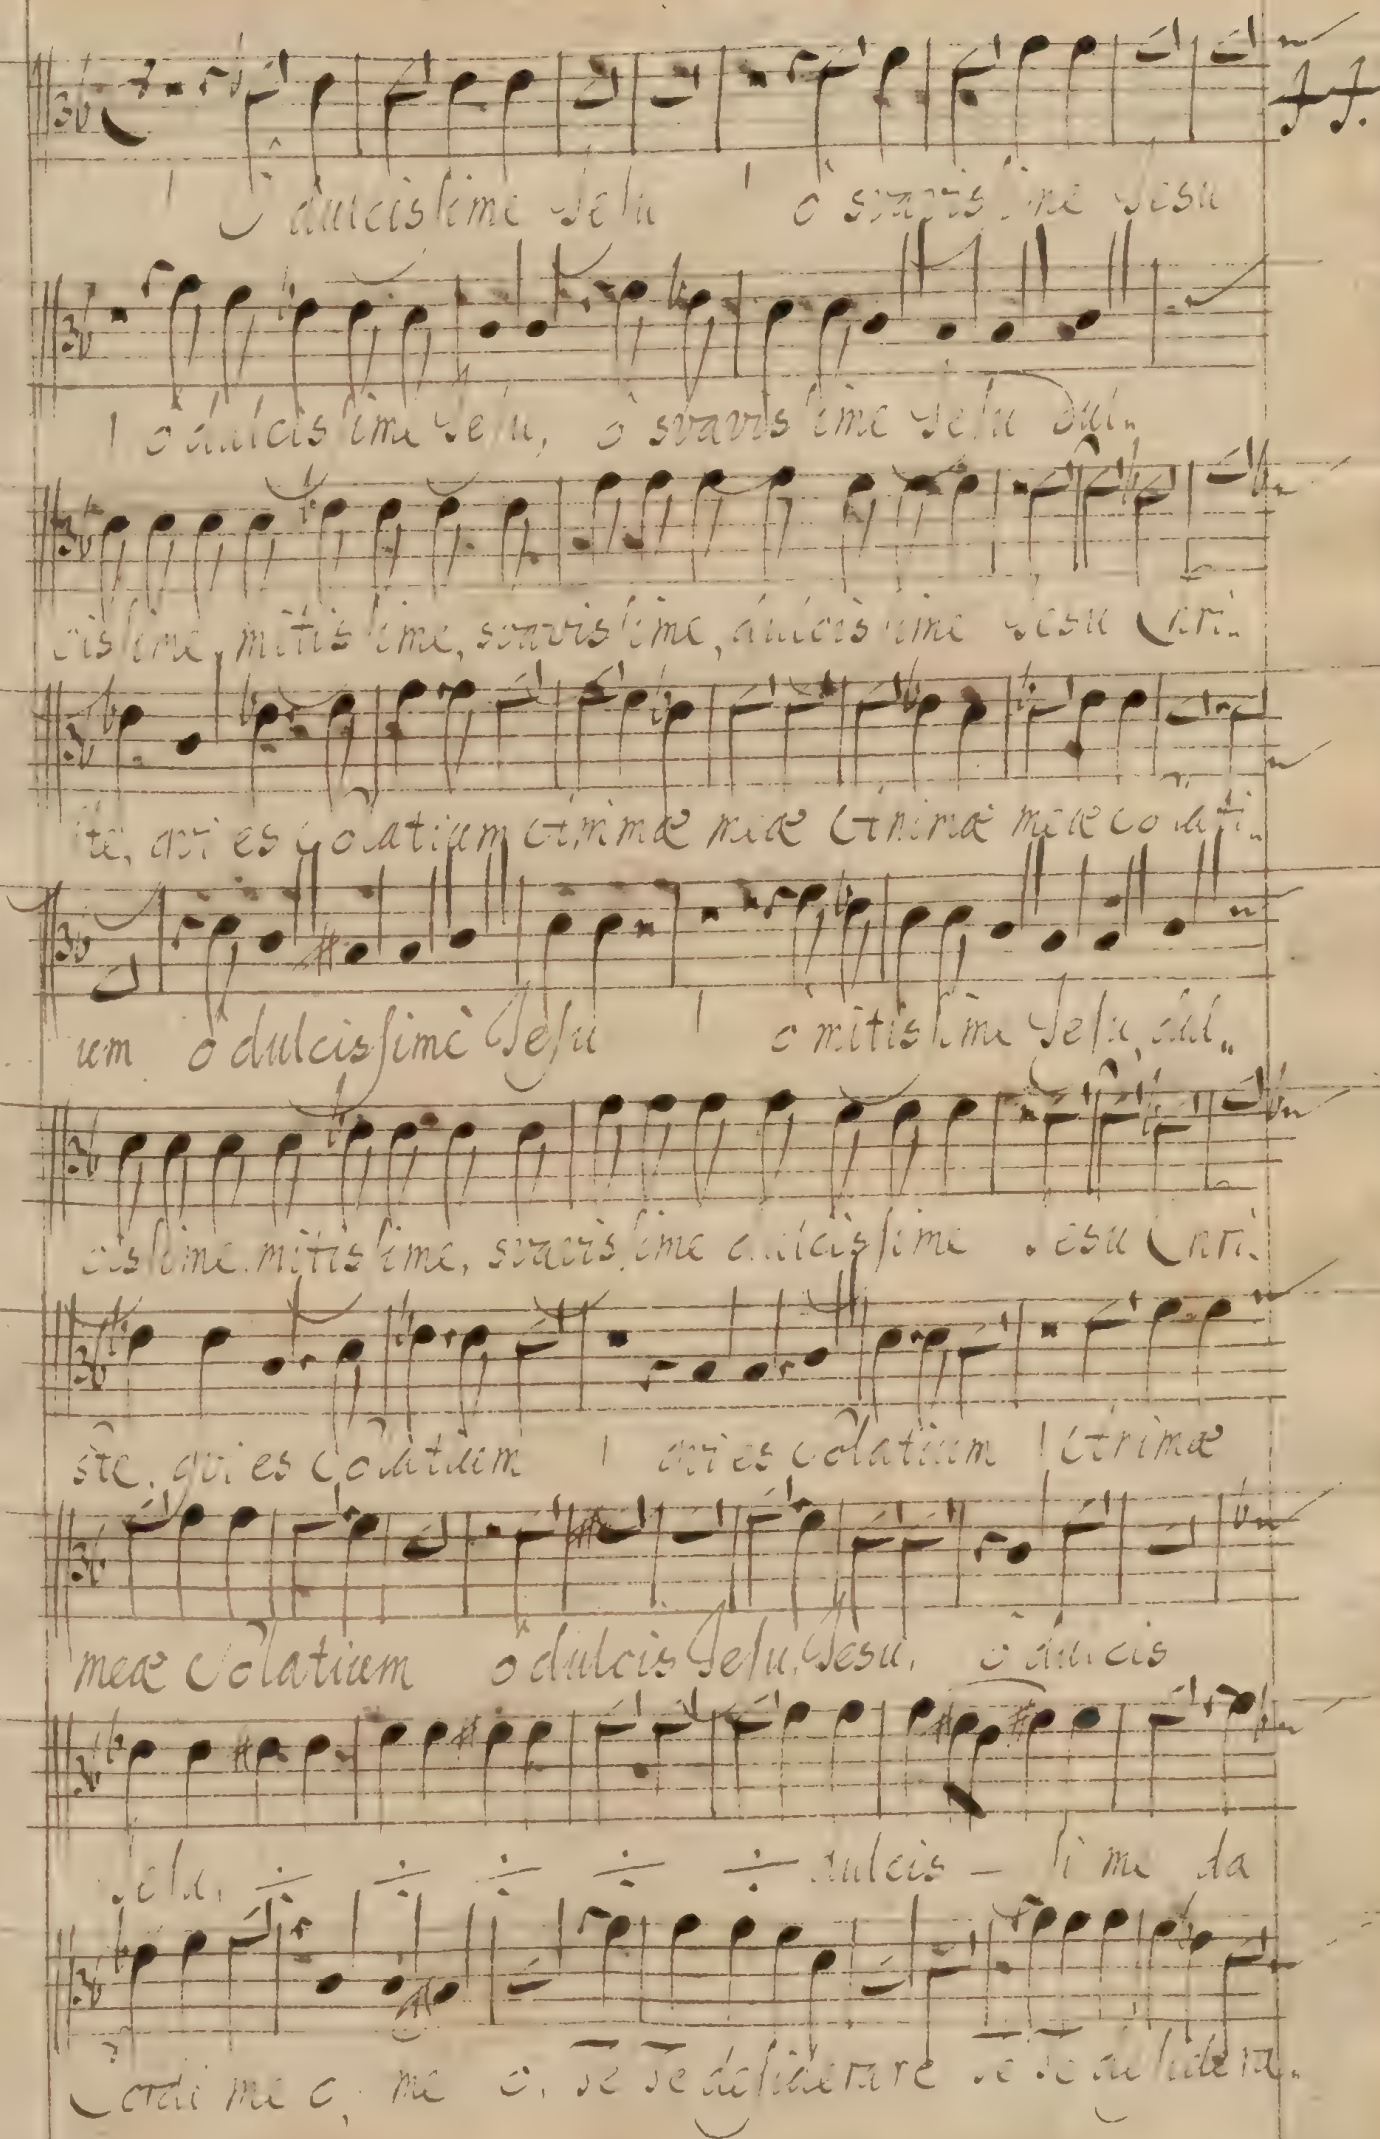 O dulcissime Jesu ô suavissime Jesu
ô dulcissime Jesu, ô svavissime Jesu Dul„
cissime, mitissime, svavissime, dulcissime Jesu Chri„
ste, qvi es Solatium Animæ meæ Animæ meæ solati„
um ô dulcissime Jesu ô mitissime Jesu, dul„
cissime, mitissime, svavissime dulcissime Jesu Chri„
ste, qvi es Solatium qvi es Solatium Animæ
meæ Solatium ô dulcis Jesu, Jesu, ô dulcis
Jesu, ÷ ÷ ÷ ÷ ÷ dulcis – sime da
Cordi meo, meo, Te Te desiderare Te Te desidera„